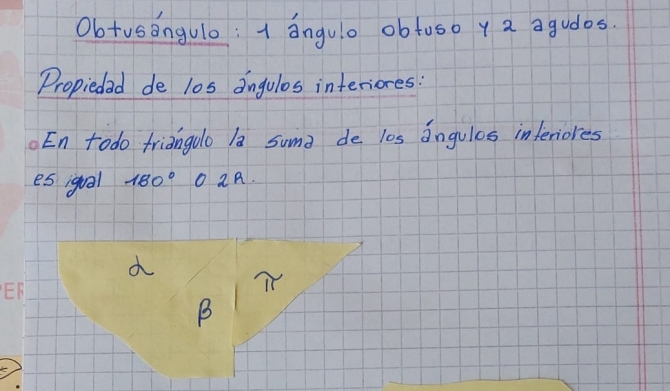 Obtusángulo: 1 ángulo obtuso y 2 agudos.
Propiedad de los ángulos interiores:
En todo triángulo la suma de los ángulos interiores
es igual 180° o 2R.
α β π